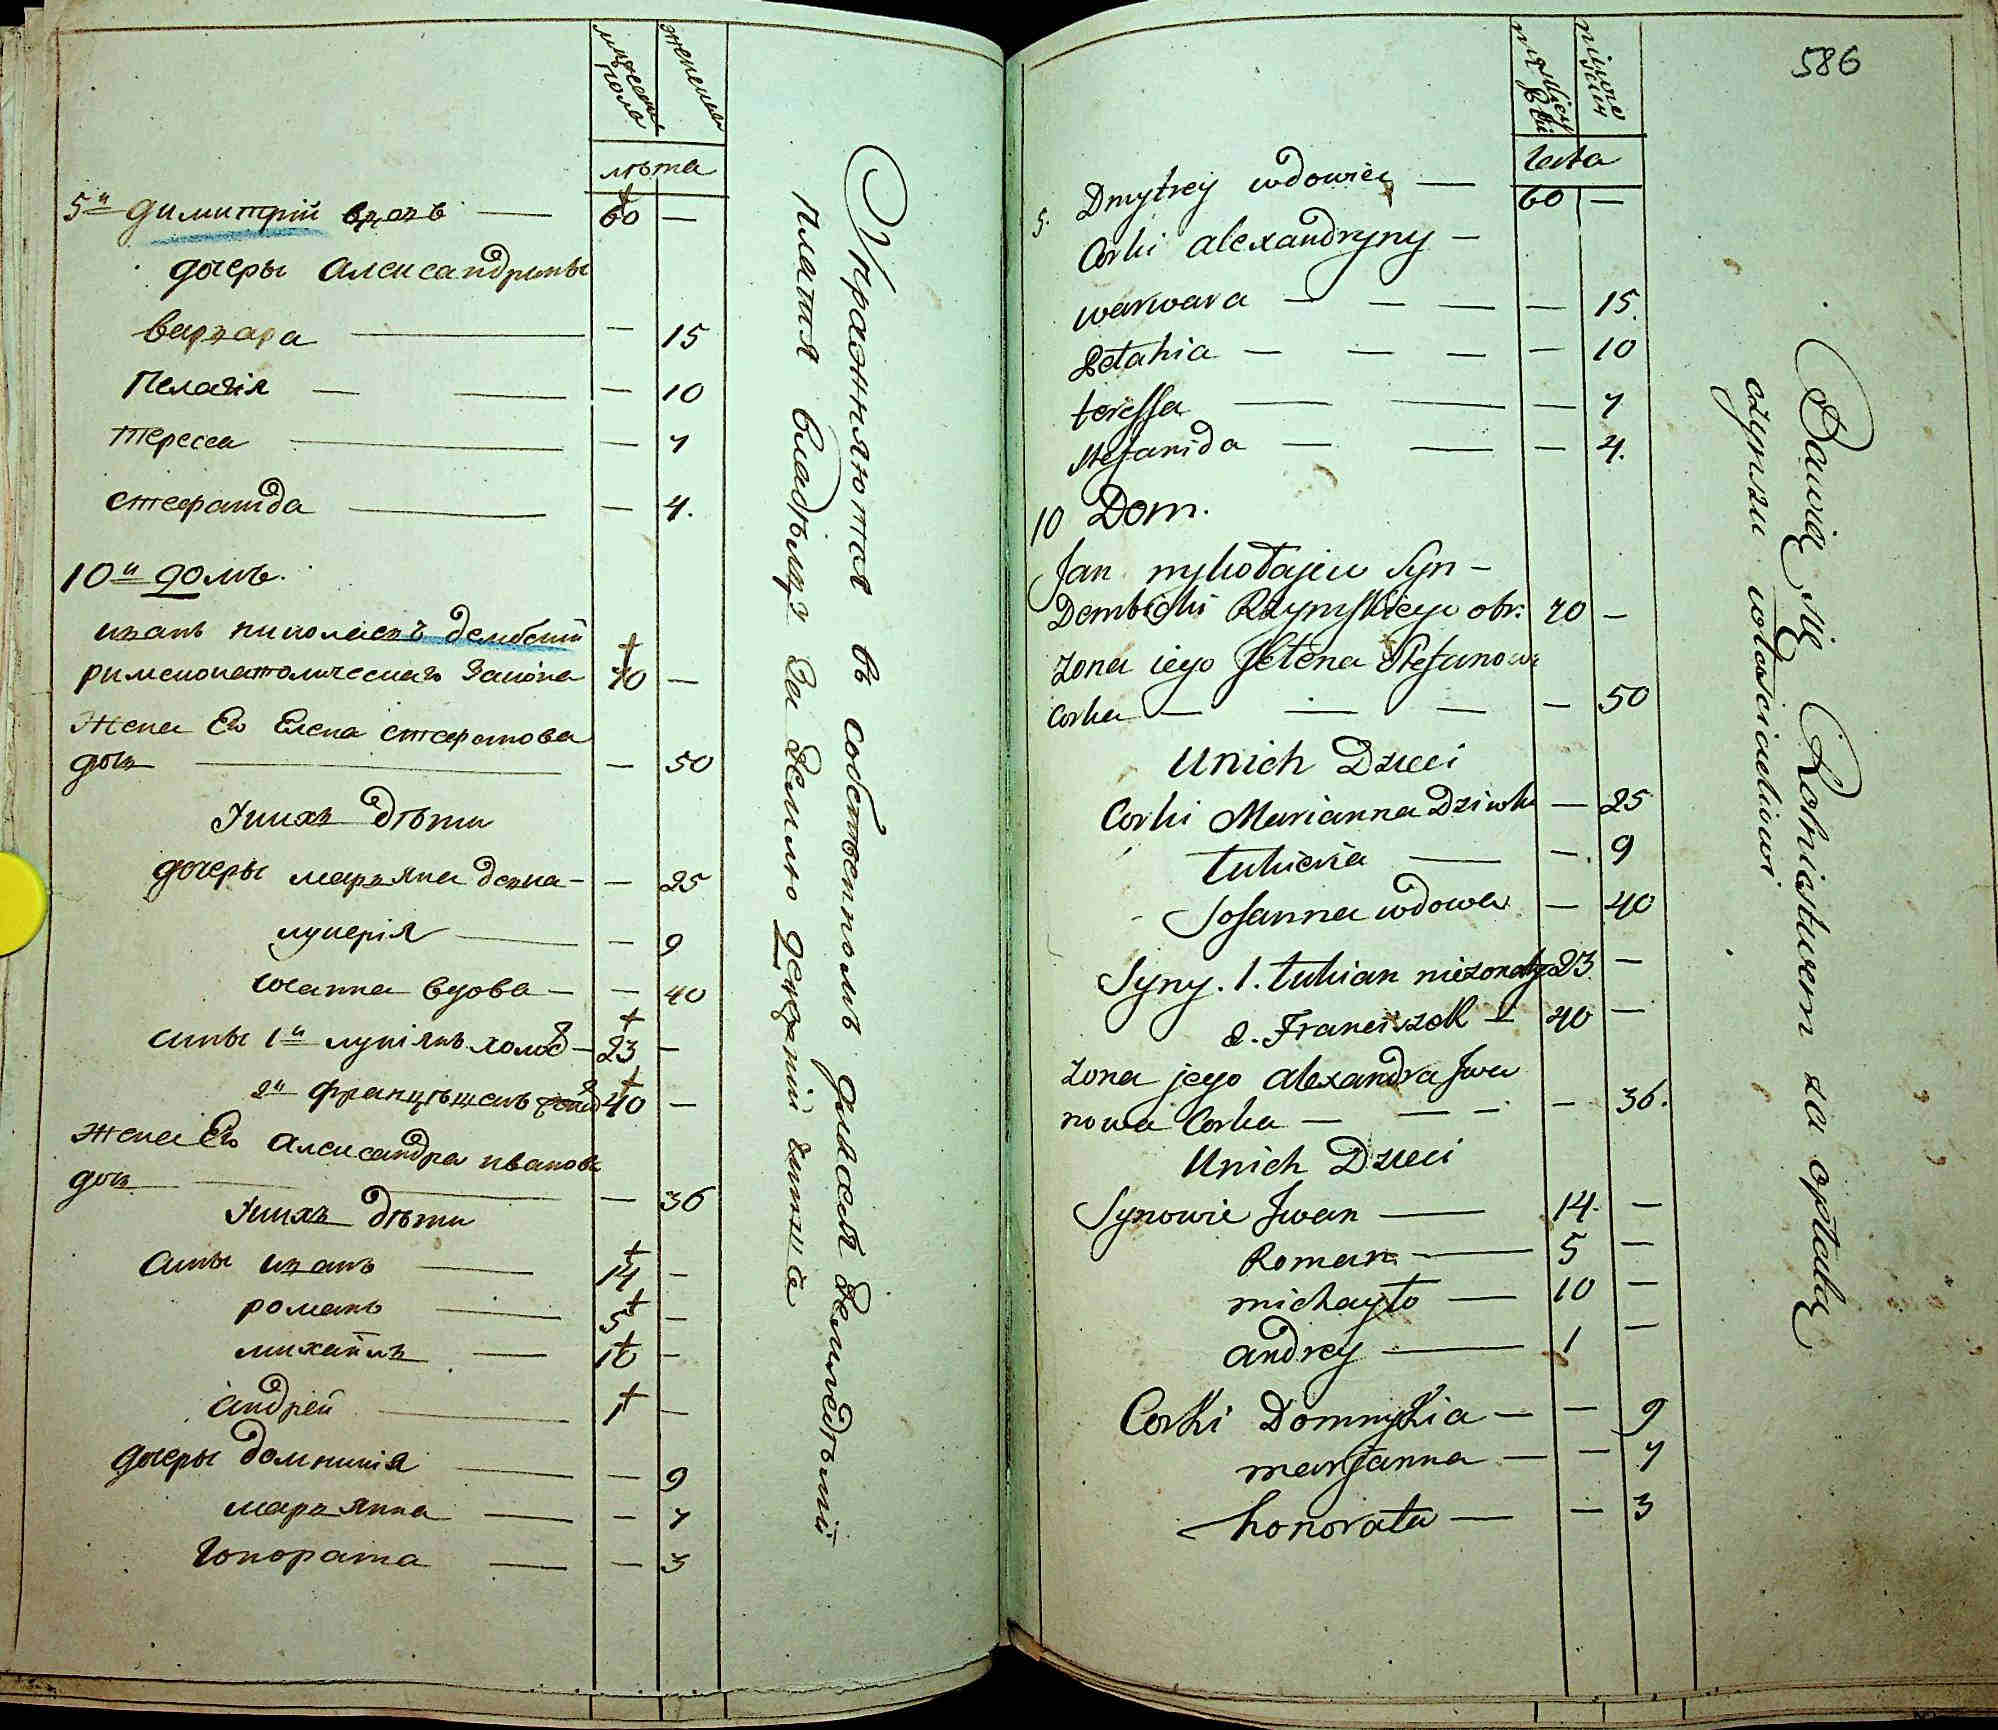 мужеска пола
женска
лѣта
5й димитрій вдовъ — 60 —
дочеры Александрины
варвара — — 15
Пелагія — — 10
тересса — — 7
стефанида — — 4.
10й домъ.
иванъ николаевъ дембскій
римскокатолическаго закона 70 —
Жена Его Елена стефанова
дочь — — 50
Унихъ дѣти
дочеры марьяна девка — — 25
лукерія — — 9
юсанна вдова — — 40
сыны 1й лукіянъ холос — 23 —
2й францѣшекъ 40 —
жена Его Александра иванова
дочь — — 36
Унихъ дѣти
сыны иванъ — 14 —
романъ — 5 —
михайлъ — 10 —
андрей — 1 —
дочеры домникія — — 9
марьянна — — 7
гонората — — 3
Упражняются въ собственномъ уплатя владѣльцу за землю чинша
586
męzkiey płci
niewieściey
Lata
5. Dmytrey wdowiec — 60 —
Corki alexandryny —
warwara — — — — 15.
Pełahia — — — — 10
teressa — — — 7
Stefanida — — — 4.
10 Dom.
Jan mykołajew Syn —
Dembicki Rzymskiego obr. 70 —
żona iego Helena Stefanowa
Corka — — — — 50
Unich Dzieci
Corki Marianna Dziwka — 25
Łukieria — — . 9
Josanna wdowa — 40
Syny. 1. Łukian nieżonaty 23 —
2. Franciszek — 40 —
żona jego alexandra Iwa
nowa Corka — — — — 36.
Unich Dzieci
Synowie Iwan — 14. —
Roman — 5 —
michayło — 10 —
andrey — 1 —
Corki Domnykia — — 9
marjanna — — 7
honorata — — 3
Bawią się Rolnictwem za opłatą
czynszu właścicielowi